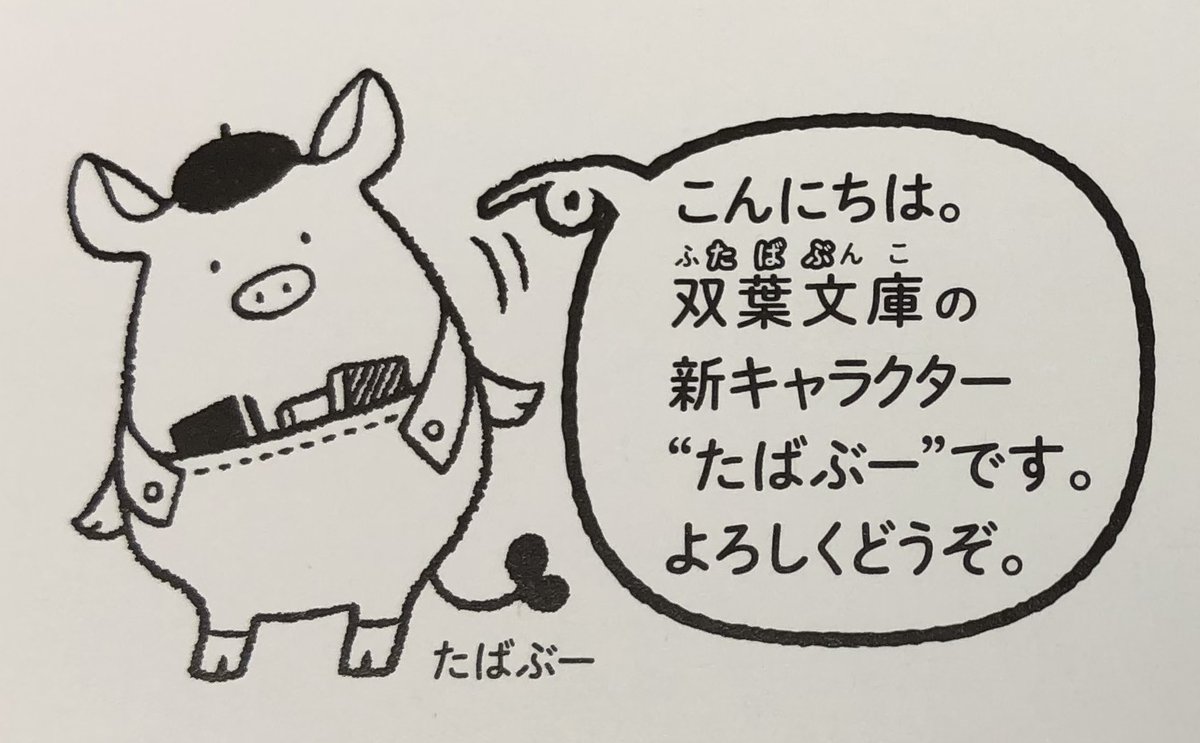 こんにちは。
ふたばぶんこ
双葉文庫の
新キャラクター
“たばぶー”です。
よろしくどうぞ。
たばぶー